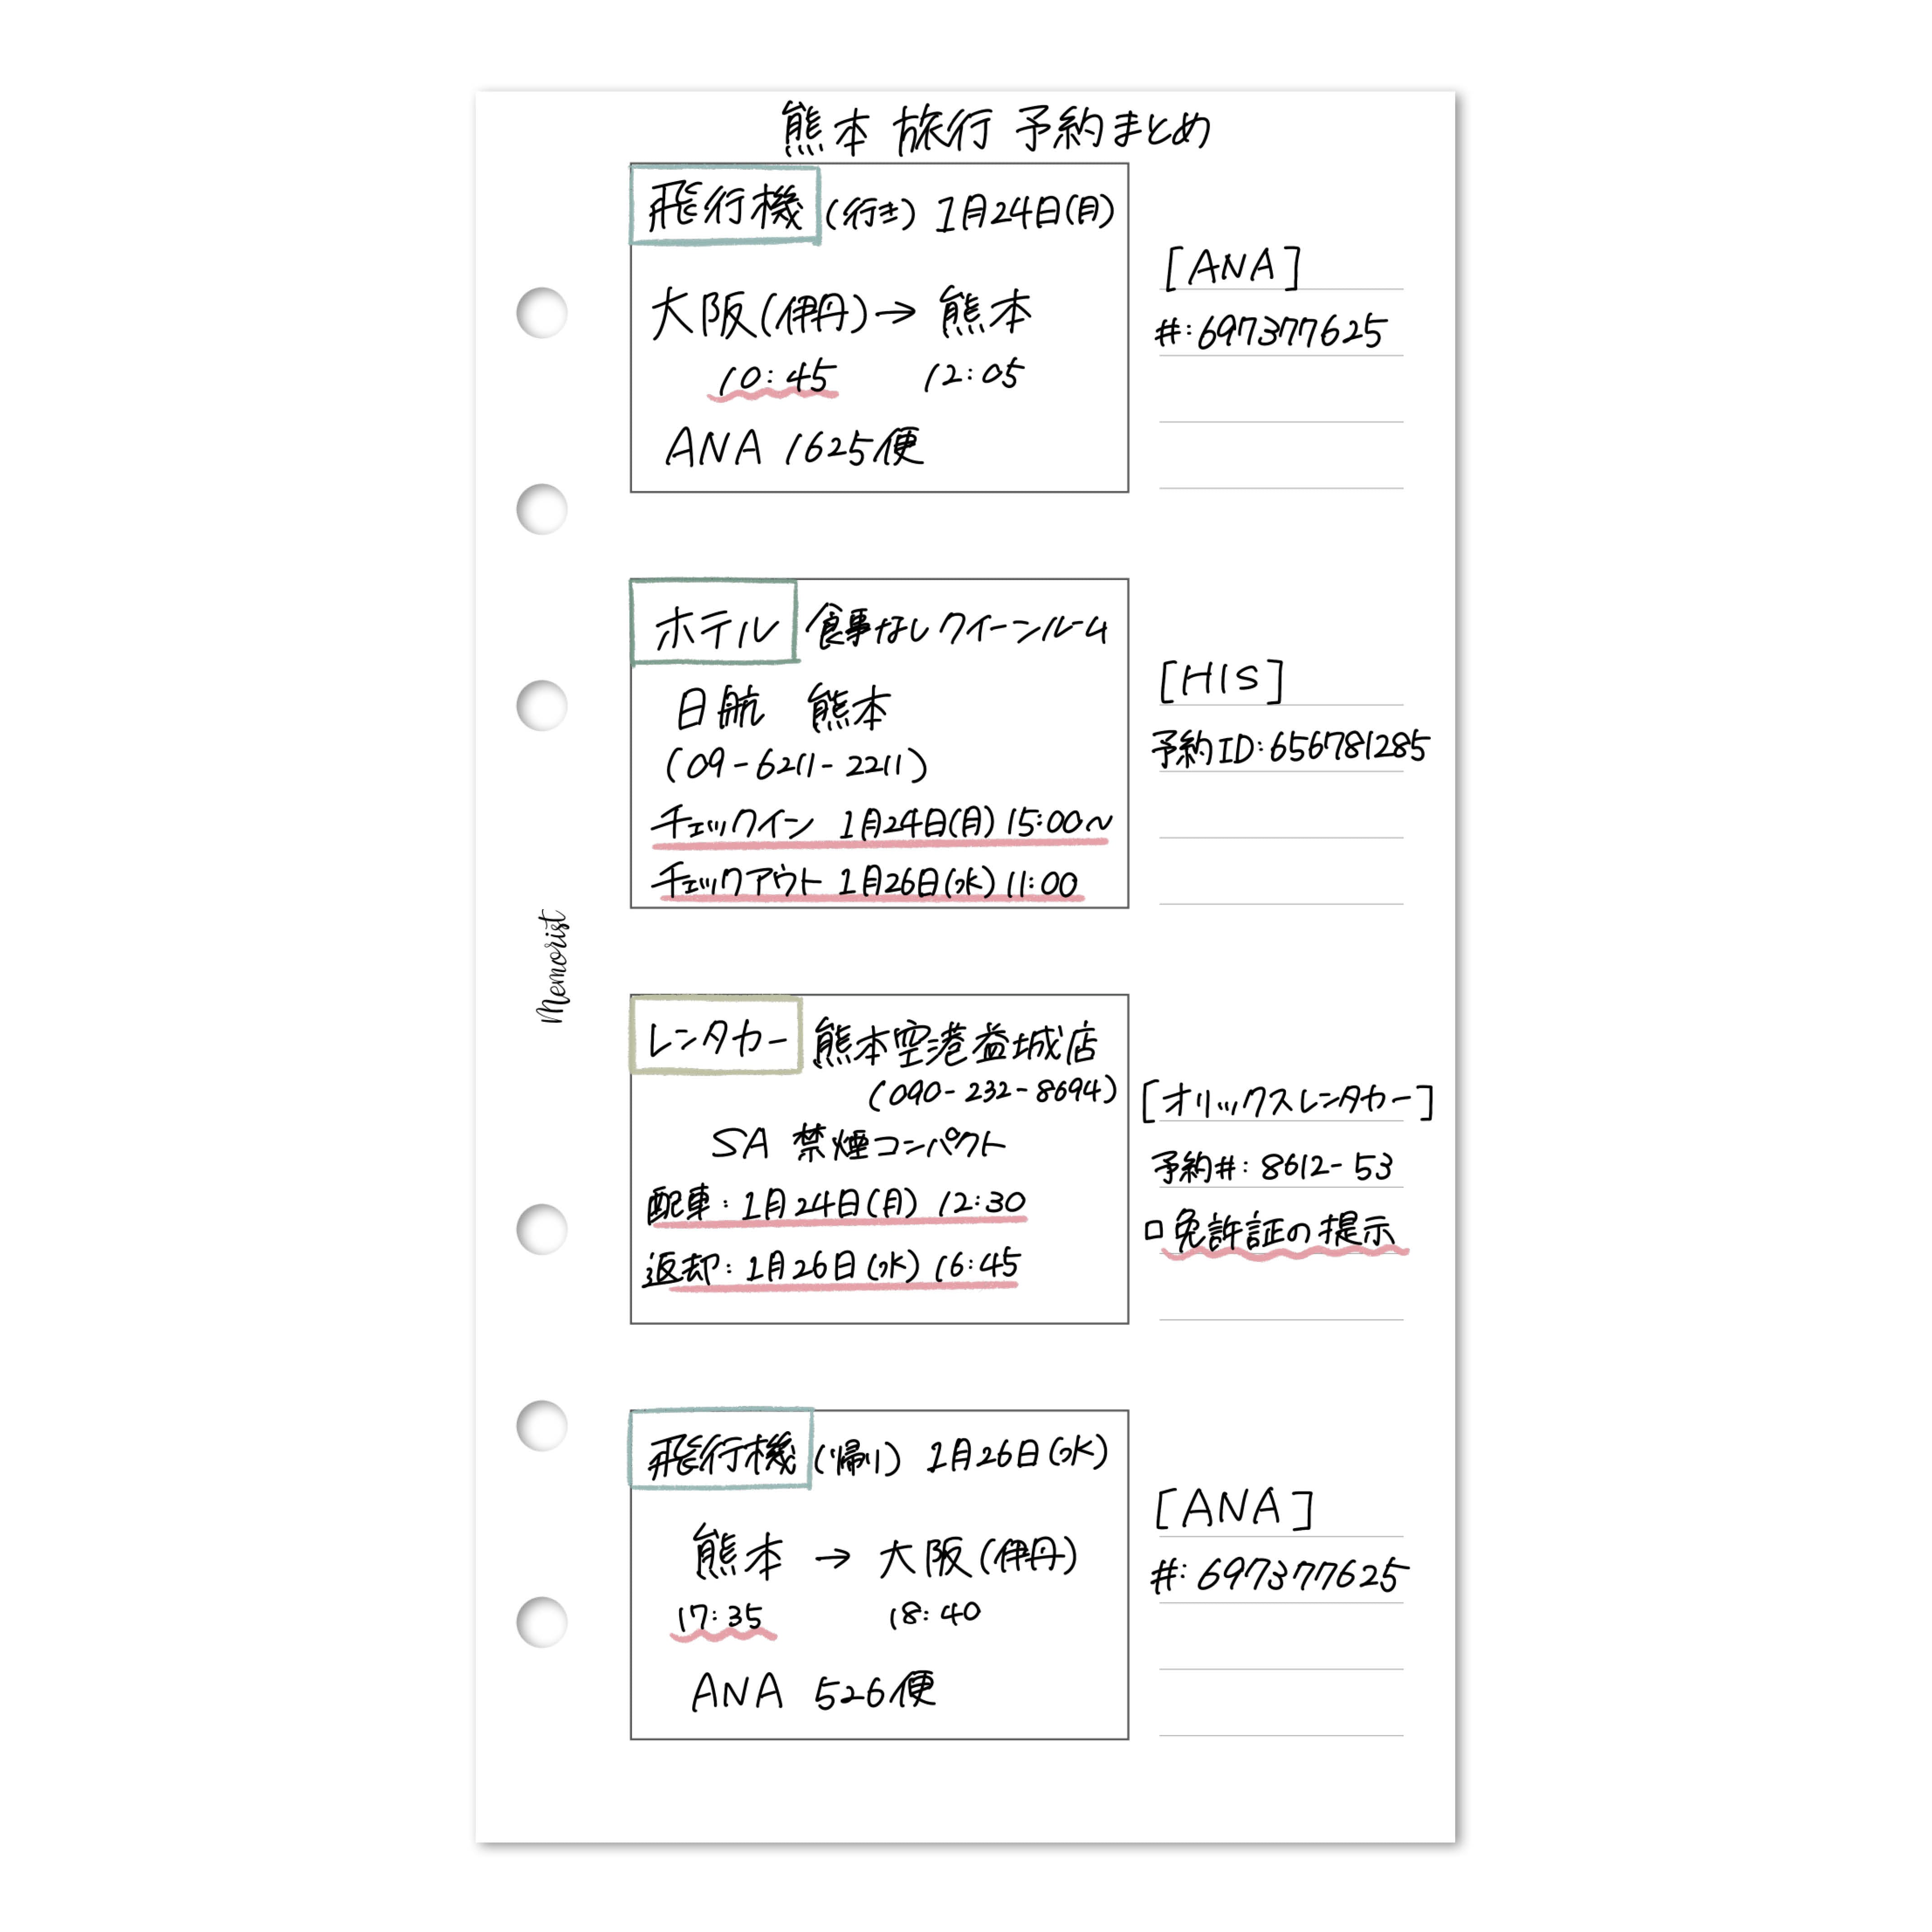 熊本 旅行 予約まとめ
飛行機 (行き) 1月24日(月)
大阪(伊丹)→ 熊本
10:45 12:05
ANA 1625便
[ANA]
#:697377625
ホテル 食事なし クイーンルーム
日航 熊本
(09-6211-2211)
チェックイン 1月24日(月) 15:00~
チェックアウト 1月26日(水) 11:00
[HIS]
予約ID:656781285
レンタカー 熊本空港益城店
(090-232-8694)
SA 禁煙コンパクト
配車:1月24日(月) 12:30
返却:1月26日(水) 16:45
[オリックスレンタカー]
予約#:8612-53
□免許証の提示
飛行機 (帰り) 1月26日(水)
熊本 → 大阪(伊丹)
17:35 18:40
ANA 526便
[ANA]
#:697377625
Memorist